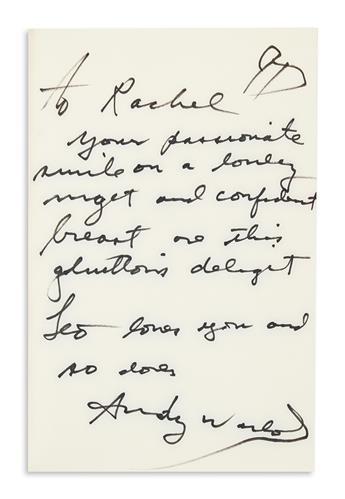 to Rachel
your passionate
smile on a lonley
niget and confident
breast are this
gluttons deliget
Leo loves you and
so does
Andy Warhol